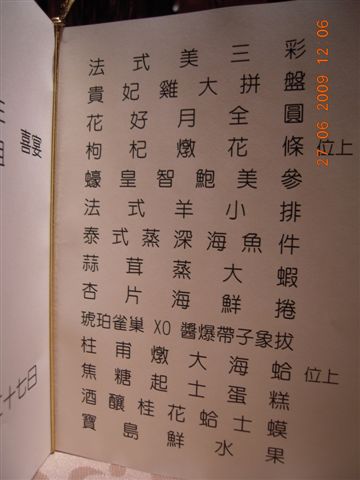 喜宴
十七日
法式美三彩
貴妃雞大拼盤
花好月全圓
枸杞燉花條 位上
蠔皇智鮑美參
法式羊小排
泰式蒸深海魚件
蒜茸蒸大蝦
杏片海鮮捲
琥珀雀巢 XO 醬爆帶子象拔
柱甫燉大海蛤 位上
焦糖起士蛋糕
酒釀桂花蛤士蟆
寶島鮮水果
27/06 2009 12:06